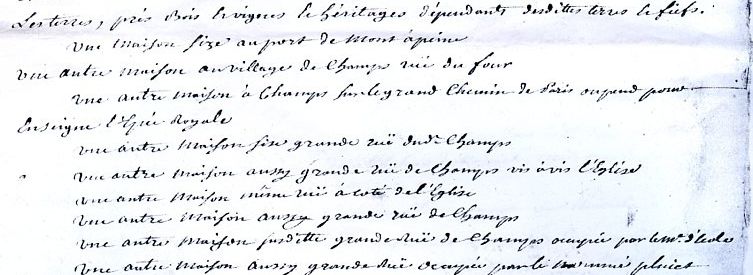 Les terres, prés Bois & vignes & héritages dépendants desdittes terres & fiefs.
une maison size au port de Mont à peine
une autre maison au village de Champs rüe du four
une autre maison à Champs sur le grand Chemin de Paris ou pend pour
Enseigne l'Epée Royale
une autre maison size grande rüe dud. Champs
une autre maison aussy grande rüe de Champs vis à vis l'Eglise
une autre maison même rüe à coté de l'Eglise
une autre maison aussy grande rüe de Champs
une autre maison susditte grande Rüe de Champs occupée par le Me. d'école
une autre maison aussy grande Rüe occupée par le nommé